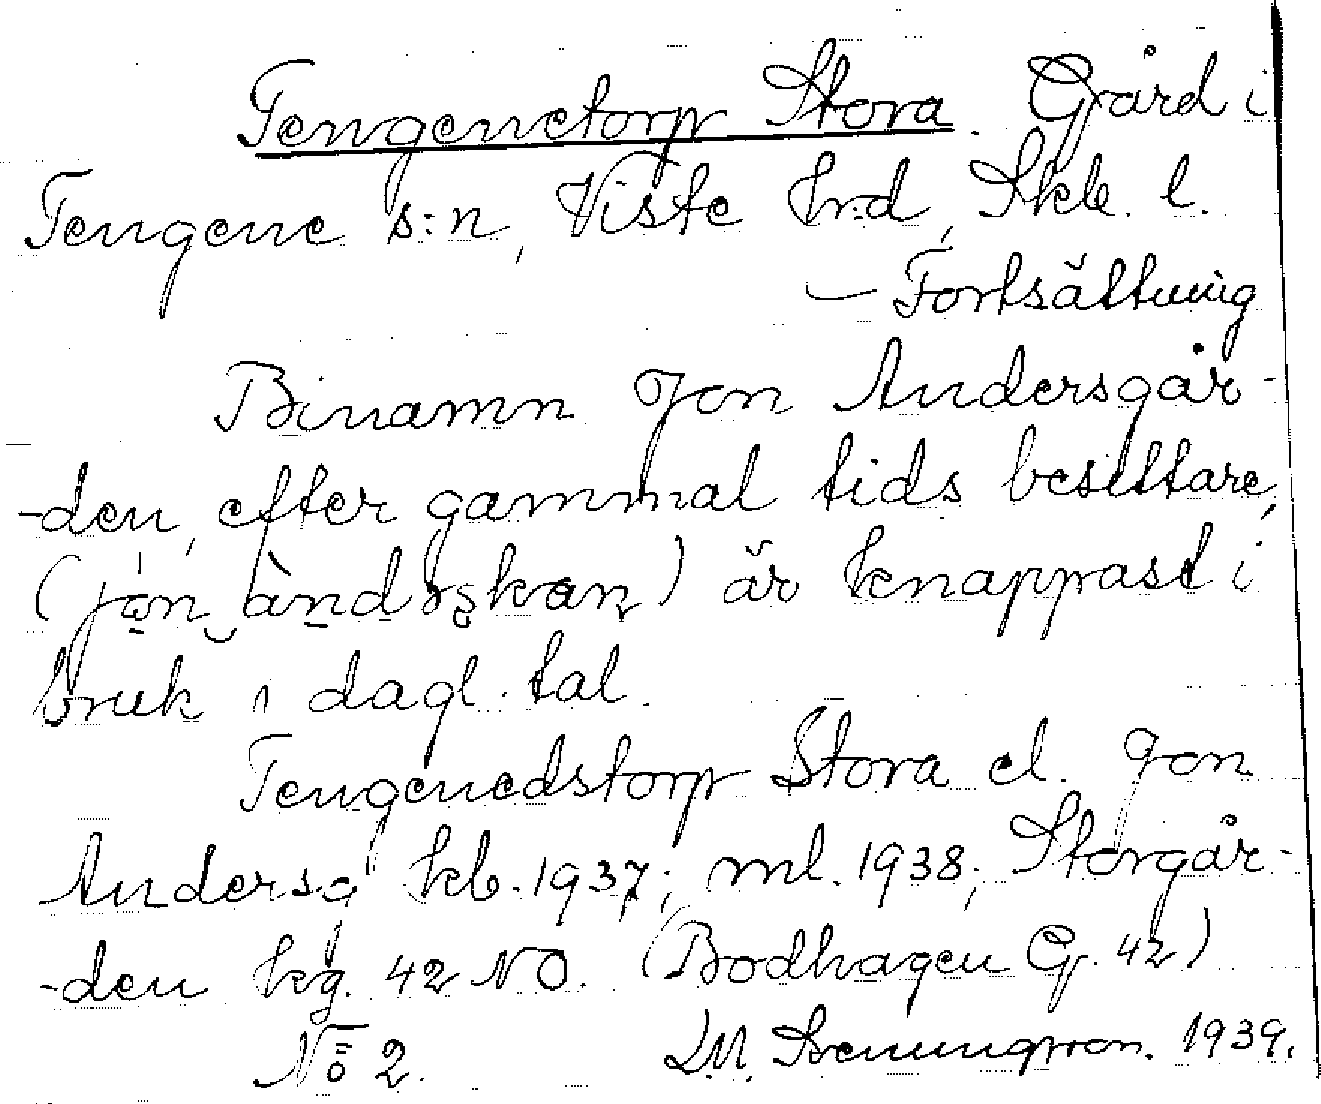 Tengenetorp Stora. Gård i
Tengene s:n, Viste hrd, Skb. l.
— Fortsättning
Binamn Jon Andersgår-
-den, efter gammal tids besittare,
är knappast i
bruk i dagl. tal.
Tengenedstorp Stora el. Jon
Andersg kb. 1937; ml. 1938; Storgår-
-den kg. 42 NO. (Bodhagen G. 42)
No 2. 1939.